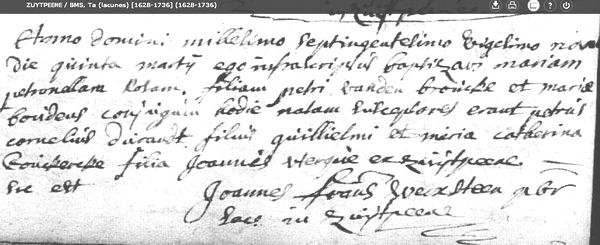 ZUYTPEENE / BMS, Ta (lacunes) [1628-1736] (1628-1736)
in Zuijtpeene
Anno domini millesimo septingentesimo vigesimo nono
die quinta martij ego infrascriptus baptizavi mariam
petronellam filiam petri vanden broucke et mariæ
boudens conjugum hodie natam susceptores erant petrus
cornelius durandt filius guillielmi et maria catherina
filia Joannis ex Zuijtpeene
ita est
Joannes Weixsteen pbr
in Zuijtpeene